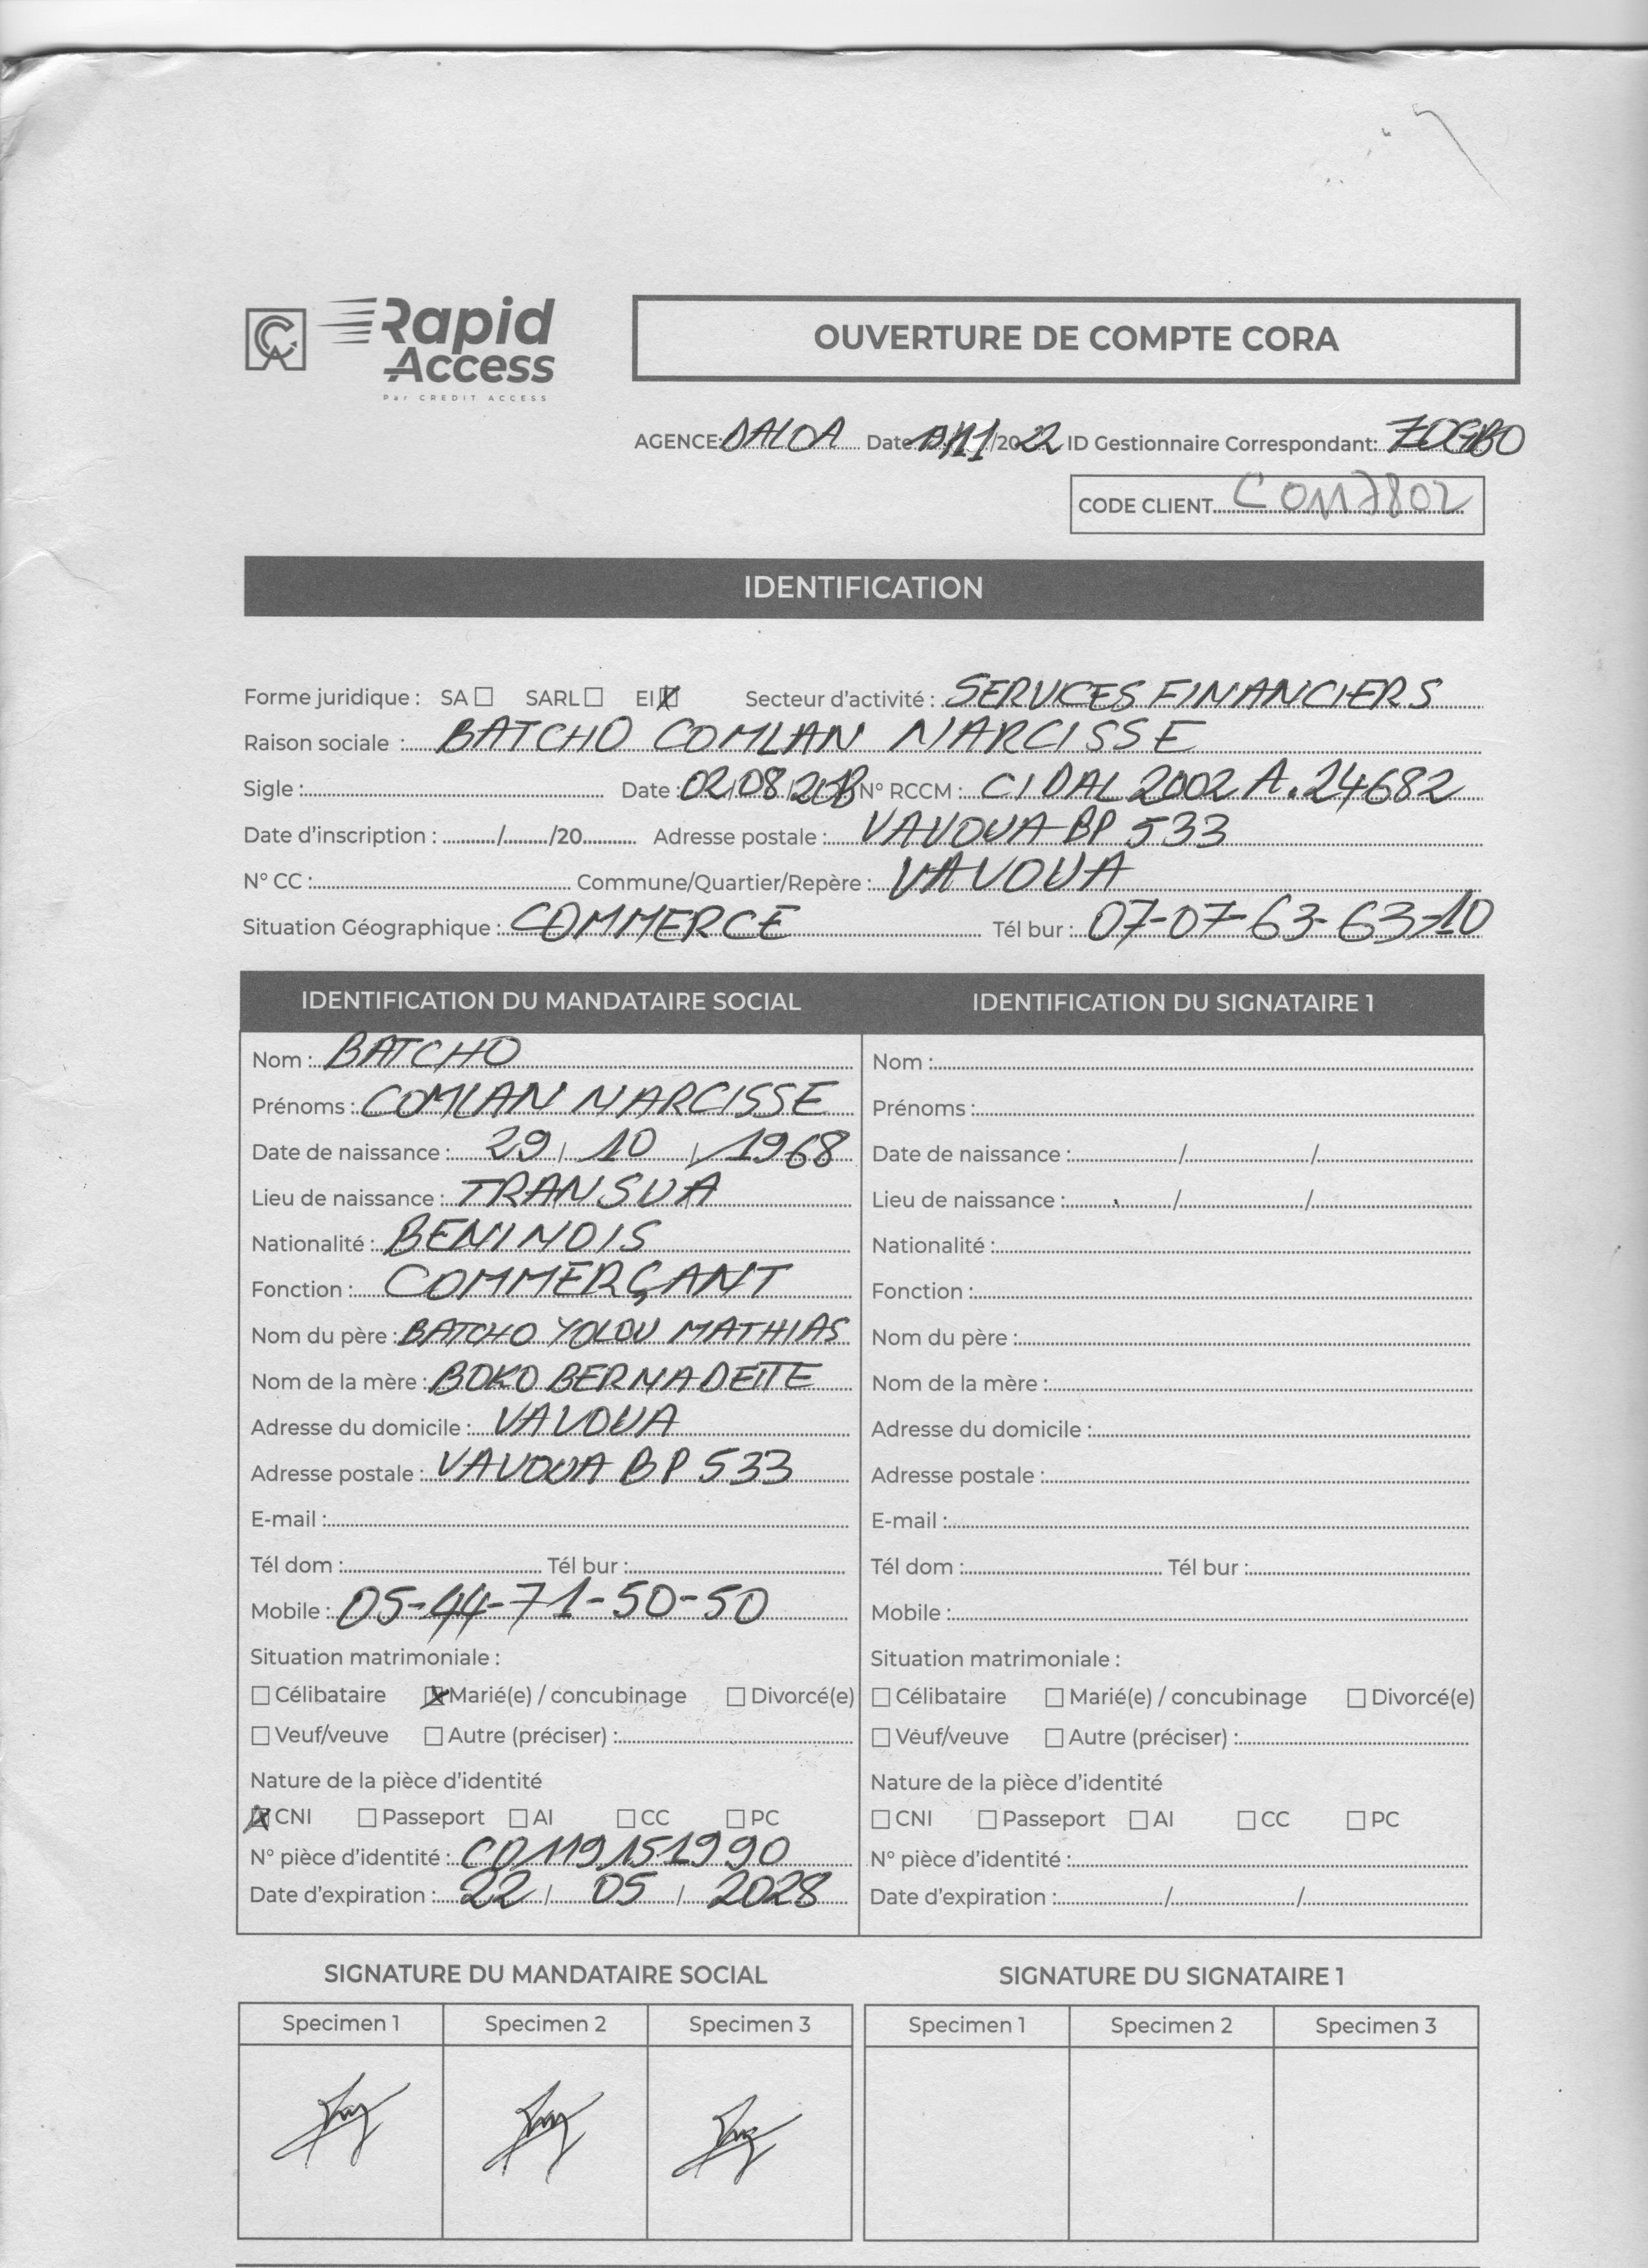 CA Rapid Access
Par CREDIT ACCESS
OUVERTURE DE COMPTE CORA
AGENCE: DALOA Date /11/2022 ID Gestionnaire Correspondant: ZOGBO
CODE CLIENT C0117802
IDENTIFICATION
Forme juridique : SA ☐ SARL ☐ EI ☒ Secteur d'activité : SERVICES FINANCIERS
Raison sociale : BATCHO COMLAN NARCISSE
Sigle : Date : 02/08/ N° RCCM : CI DAL 2002 A. 24682
Date d'inscription : / /20 Adresse postale : VAVOUA BP 533
N° CC : Commune/Quartier/Repère : VAVOUA
Situation Géographique : COMMERCE Tél bur : 07-07-63-63-10
IDENTIFICATION DU MANDATAIRE SOCIAL
Nom : BATCHO
Prénoms : COMLAN NARCISSE
Date de naissance : 29 / 10 / 1968
Lieu de naissance : TRANSUA
Nationalité : BENINOIS
Fonction : COMMERÇANT
Nom du père : BATCHO YOLOU MATHIAS
Nom de la mère : BOKO BERNADETTE
Adresse du domicile : VAVOUA
Adresse postale : VAVOUA BP 533
E-mail :
Tél dom : Tél bur :
Mobile : 05-44-71-50-50
Situation matrimoniale :
☐ Célibataire ☒ Marié(e) / concubinage ☐ Divorcé(e)
☐ Veuf/veuve ☐ Autre (préciser) :
Nature de la pièce d'identité
☒ CNI ☐ Passeport ☐ AI ☐ CC ☐ PC
N° pièce d'identité : C0119151990
Date d'expiration : 22 / 05 / 2028
IDENTIFICATION DU SIGNATAIRE 1
Nom :
Prénoms :
Date de naissance : / /
Lieu de naissance : / /
Nationalité :
Fonction :
Nom du père :
Nom de la mère :
Adresse du domicile :
Adresse postale :
E-mail :
Tél dom : Tél bur :
Mobile :
Situation matrimoniale :
☐ Célibataire ☐ Marié(e) / concubinage ☐ Divorcé(e)
☐ Veuf/veuve ☐ Autre (préciser) :
Nature de la pièce d'identité
☐ CNI ☐ Passeport ☐ AI ☐ CC ☐ PC
N° pièce d'identité :
Date d'expiration : / /
SIGNATURE DU MANDATAIRE SOCIAL
Specimen 1 Specimen 2 Specimen 3
SIGNATURE DU SIGNATAIRE 1
Specimen 1 Specimen 2 Specimen 3